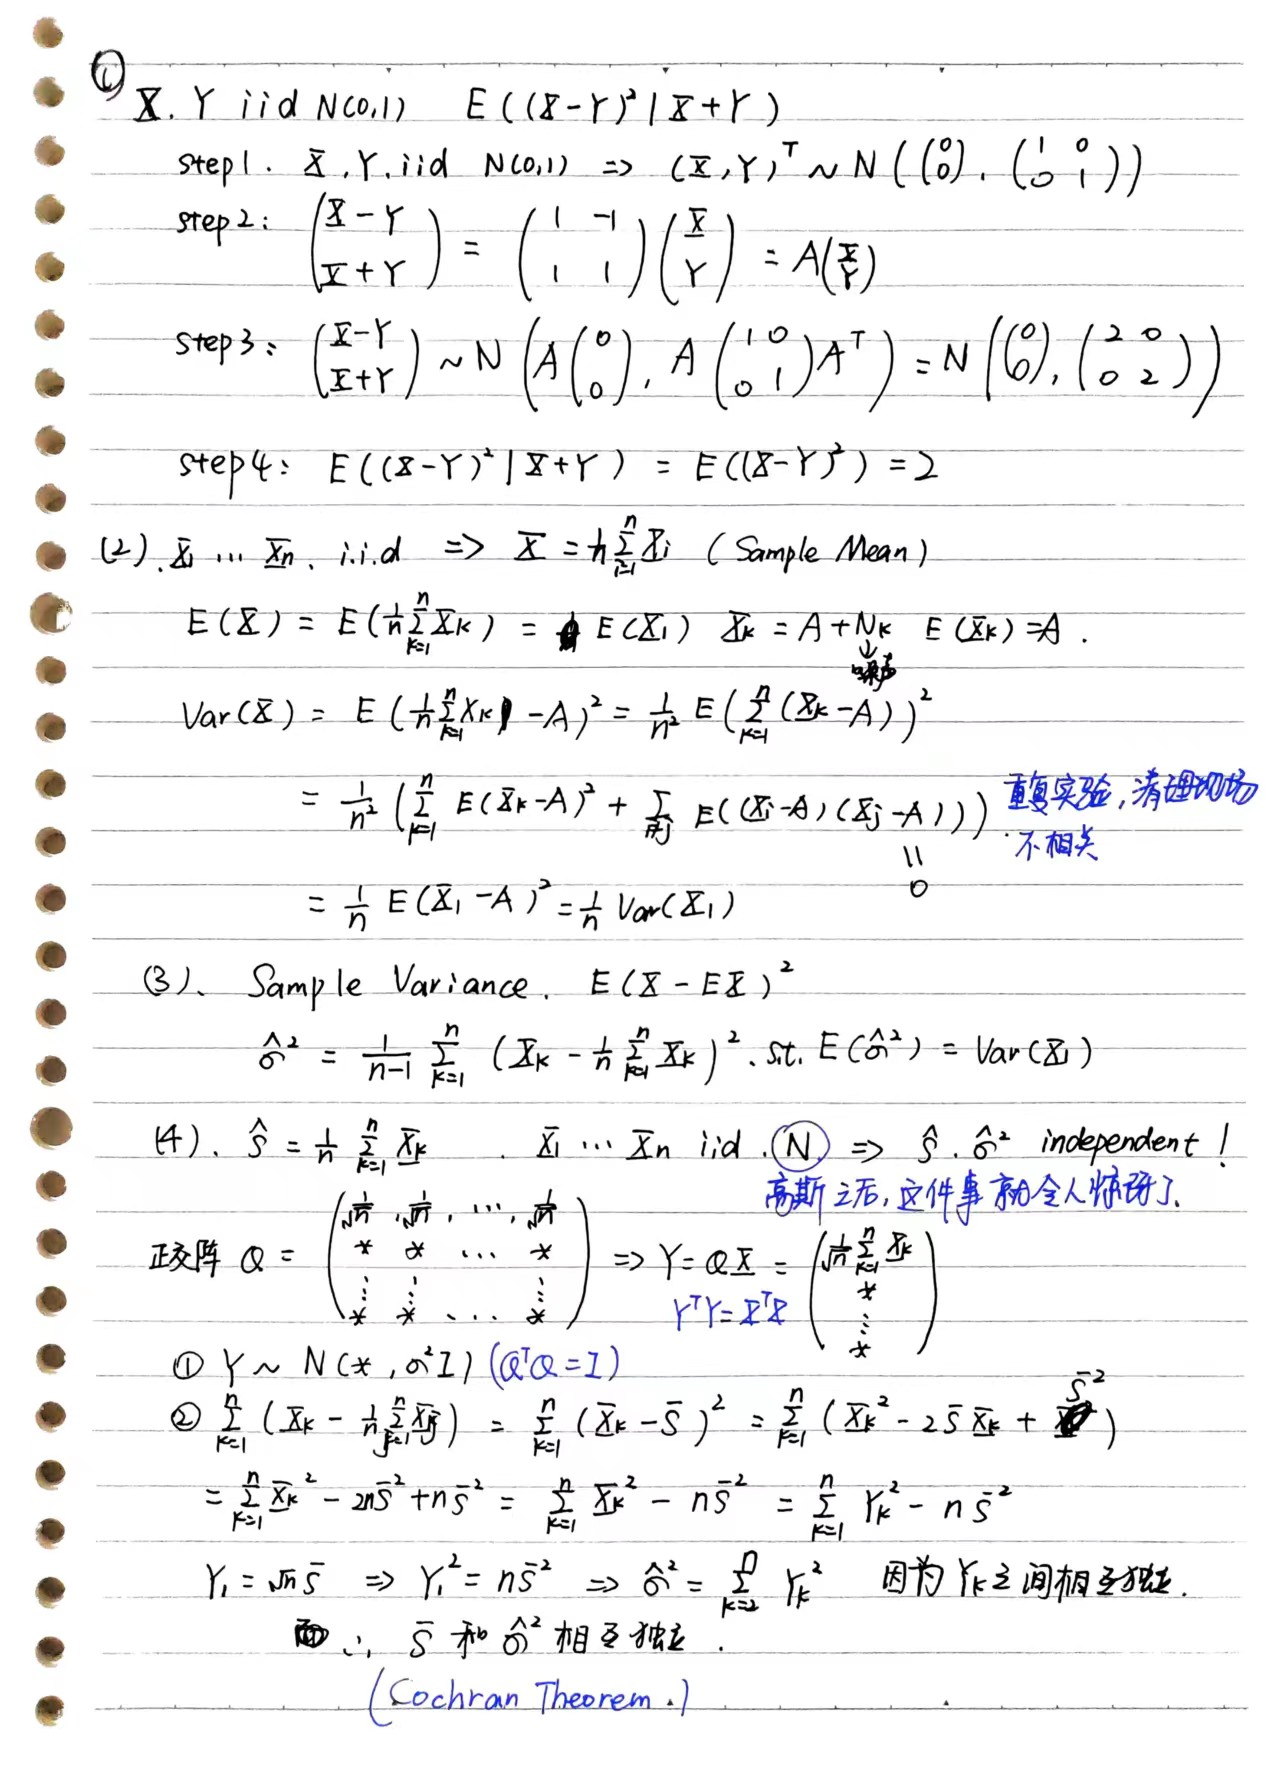 ① X, Y iid N(0,1) E((X-Y)²|X+Y)
step1. X, Y, iid N(0,1) => (X,Y)ᵀ ~ N((0 0), (1 0 0 1))
step2: (X-Y X+Y) = (1 -1 1 1)(X Y) = A(X Y)
step3: (X-Y X+Y) ~ N(A(0 0), A(1 0 0 1)Aᵀ) = N((0 0), (2 0 0 2))
step4: E((X-Y)²|X+Y) = E((X-Y)²) = 2
(2). X₁ ... Xn, i.i.d => X̄ = 1/n Σ_{i=1}^n Xi (Sample Mean)
E(X̄) = E(1/n Σ_{k=1}^n Xk) = E(X₁) Xk = A + Nk E(Xk) = A.
↓
噪声
Var(X̄) = E(1/n Σ_{k=1}^n Xk - A)² = 1/n² E(Σ_{k=1}^n (Xk - A))²
= 1/n² (Σ_{k=1}^n E(Xk-A)² + Σ_{i≠j} E((Xi-A)(Xj-A))) 重复实验,清理现场
不相关
=
0
= 1/n E(X₁-A)² = 1/n Var(X₁)
(3). Sample Variance. E(X - EX)²
σ̂² = 1/(n-1) Σ_{k=1}^n (Xk - 1/n Σ_{k=1}^n Xk)². s.t. E(σ̂²) = Var(X₁)
(4). Ŝ = 1/n Σ_{k=1}^n Xk . X₁ ... Xn iid. N => Ŝ. σ̂² independent!
高斯之后,这件事就令人惊讶了.
正交阵 Q = (1/√n, 1/√n, ..., 1/√n * * ... * ⋮ ⋮ ⋮ * * ... *) => Y = QX = (1/√n Σ_{k=1}^n Xk * ⋮ *)
YᵀY = XᵀX
① Y ~ N(*, σ²I) (QᵀQ = I)
② Σ_{k=1}^n (Xk - 1/n Σ_{j=1}^n Xj) = Σ_{k=1}^n (Xk - S̄)² = Σ_{k=1}^n (Xk² - 2S̄Xk + S̄²)
= Σ_{k=1}^n Xk² - 2nS̄² + nS̄² = Σ_{k=1}^n Xk² - nS̄² = Σ_{k=1}^n Yk² - nS̄²
Y₁ = √n S̄ => Y₁² = nS̄² => σ̂² = Σ_{k=2}^n Yk² 因为Yk之间相互独立.
∴ S̄ 和 σ̂² 相互独立.
(Cochran Theorem.)